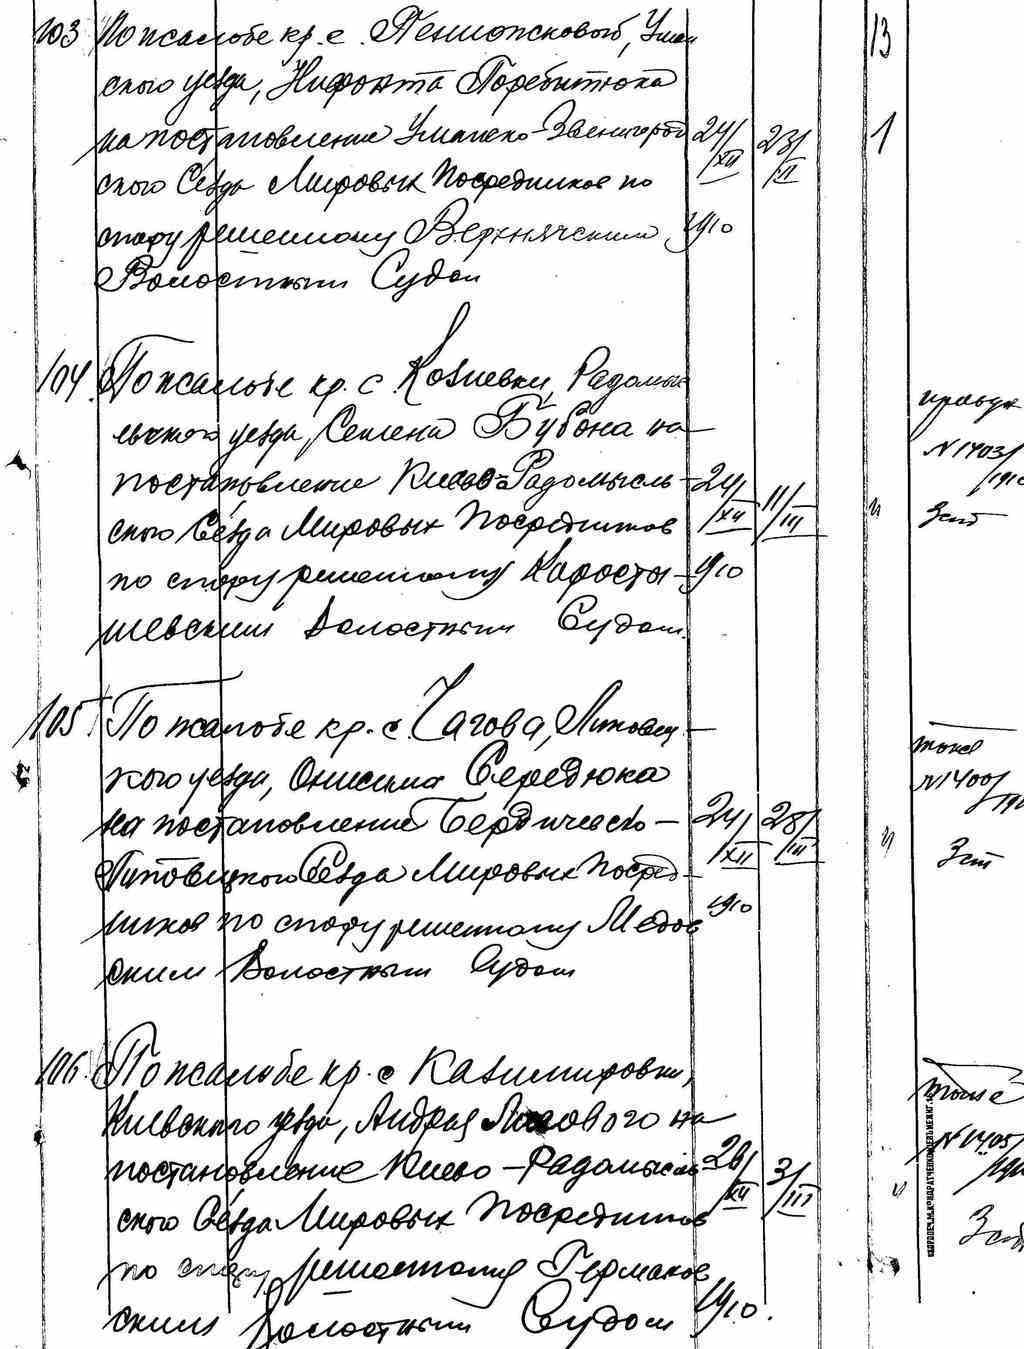 103 По жалобе кр. с. Пениожковой, Уман
ского уезда, Нифонта Поребитюка
на постановление Уманско-Звенигород 24/XII 23/II
ского Съезда Мировых Посредников по
спору решенному Верхнячским 1910
Волостным Судом
13
1
104 По жалобе кр. с. Козиевки, Радомыс
льского уезда, Семена Бубона на
постановление Киево-Радомысль- 24/XII 11/III
ского Съезда Мировых Посредников
по спору решенному Коросты- 1910
шевским Волостным Судом.
N 1403/1910
105 По жалобе кр. с. Чагова, Липовец-
кого уезда, Онисима Середюка
на постановление Бердичевско- 24/XII 28/III
Липовецкого Съезда Мировых Посред-
ников по спору решенному Медов 1910
ским Волостным Судом
тоже
N 1400/191
3 ст
106. По жалобе кр. с Казимировки,
Киевского уезда, Андрея на
постановление Киево-Радомысль 28/XII 3/III
ского Съезда Мировых Посредников
по спору решенному Германов
ским Волостным Судом 1910.
тоже
N 1405/